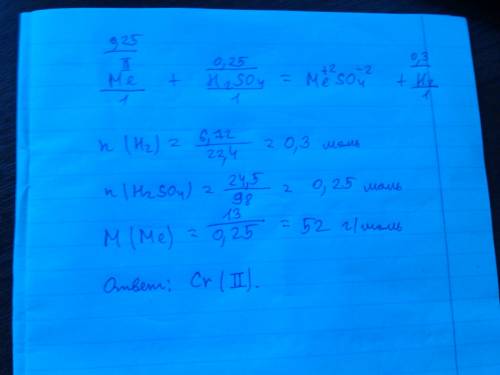 0,25 0,25 0,3
II +2 -2
Me + H2SO4 = MeSO4 + H2
1 1 1
n (H2) = 6,72 / 22,4 = 0,3 моль
n (H2SO4) = 24,5 / 98 = 0,25 моль
M (Me) = 13 / 0,25 = 52 г/моль
Ответ: Cr (II).